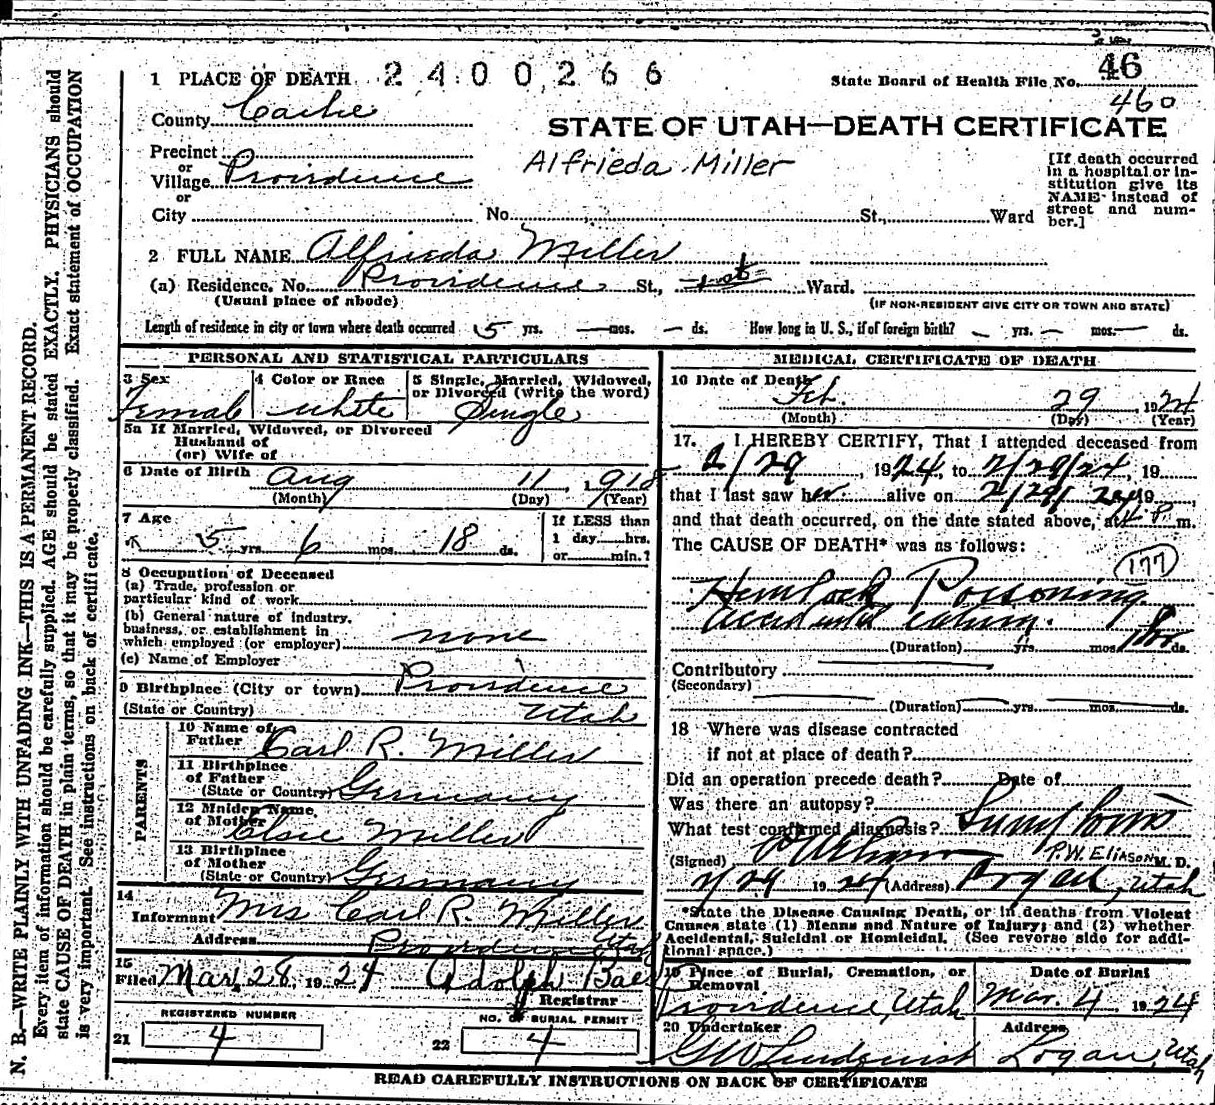 1 PLACE OF DEATH 2400266
State Board of Health File No. 46
460
County Cache
STATE OF UTAH—DEATH CERTIFICATE
Precinct
or
Village Providence
Alfrieda Miller
[If death occurred in a hospital or institution give its NAME instead of street and number.]
or
City No. St., Ward
2 FULL NAME Alfrieda Miller
(a) Residence. No. Providence St., 1st Ward.
(Usual place of abode) (IF NON-RESIDENT GIVE CITY OR TOWN AND STATE)
Length of residence in city or town where death occurred 5 yrs. — mos. — ds. How long in U. S., if of foreign birth? — yrs. — mos. — ds.
PERSONAL AND STATISTICAL PARTICULARS
3 Sex 4 Color or Race 5 Single, Married, Widowed, or Divorced (write the word)
Female white Single
5a If Married, Widowed, or Divorced
Husband of
(or) Wife of
6 Date of Birth Aug 11, 1918
(Month) (Day) (Year)
7 Age If LESS than
5 yrs. 6 mos. 18 ds. 1 day hrs.
or min.?
8 Occupation of Deceased
(a) Trade, profession or
particular kind of work
(b) General nature of industry,
business, or establishment in
which employed (or employer) none
(c) Name of Employer
9 Birthplace (City or town) Providence
(State or Country) Utah
PARENTS
10 Name of
Father Carl R. Miller
11 Birthplace
of Father
(State or Country) Germany
12 Maiden Name
of Mother Elsie Miller
13 Birthplace
of Mother
(State or Country) Germany
14
Informant Mrs Carl R. Miller
Address Providence Utah
15
Filed Mar 28, 1924 Adolph Baer
Registrar
REGISTERED NUMBER NO. OF BURIAL PERMIT
21 4 22 4
MEDICAL CERTIFICATE OF DEATH
16 Date of Death
Feb. 29, 1924
(Month) (Day) (Year)
17. I HEREBY CERTIFY, That I attended deceased from
2/29, 1924, to 2/29/24, 19
that I last saw her alive on 2/29/24, 19
and that death occurred, on the date stated above, at 4 P. m.
The CAUSE OF DEATH* was as follows:
177
Hemlock Poisoning
accidental eating.
(Duration) yrs. mos. ds.
Contributory
(Secondary)
(Duration) yrs. mos. ds.
18 Where was disease contracted
if not at place of death?
Did an operation precede death? Date of
Was there an autopsy?
What test confirmed diagnosis? Symptoms
(Signed) P.W. Eliason M. D.
2/29 1924 (Address) Logan, Utah
*State the Disease Causing Death, or in deaths from Violent
Causes state (1) Means and Nature of Injury; and (2) whether
Accidental, Suicidal or Homicidal. (See reverse side for addi-
tional space.)
19 Place of Burial, Cremation, or Date of Burial
Removal
Providence, Utah Mar. 4 1924
20 Undertaker Address
G W Lundquist Logan, Utah
READ CAREFULLY INSTRUCTIONS ON BACK OF CERTIFICATE
N. B.—WRITE PLAINLY WITH UNFADING INK—THIS IS A PERMANENT RECORD.
Every item of information should be carefully supplied. AGE should be stated EXACTLY. PHYSICIANS should
state CAUSE OF DEATH in plain terms, so that it may be properly classified. Exact statement of OCCUPATION
is very important. See instructions on back of certificate.